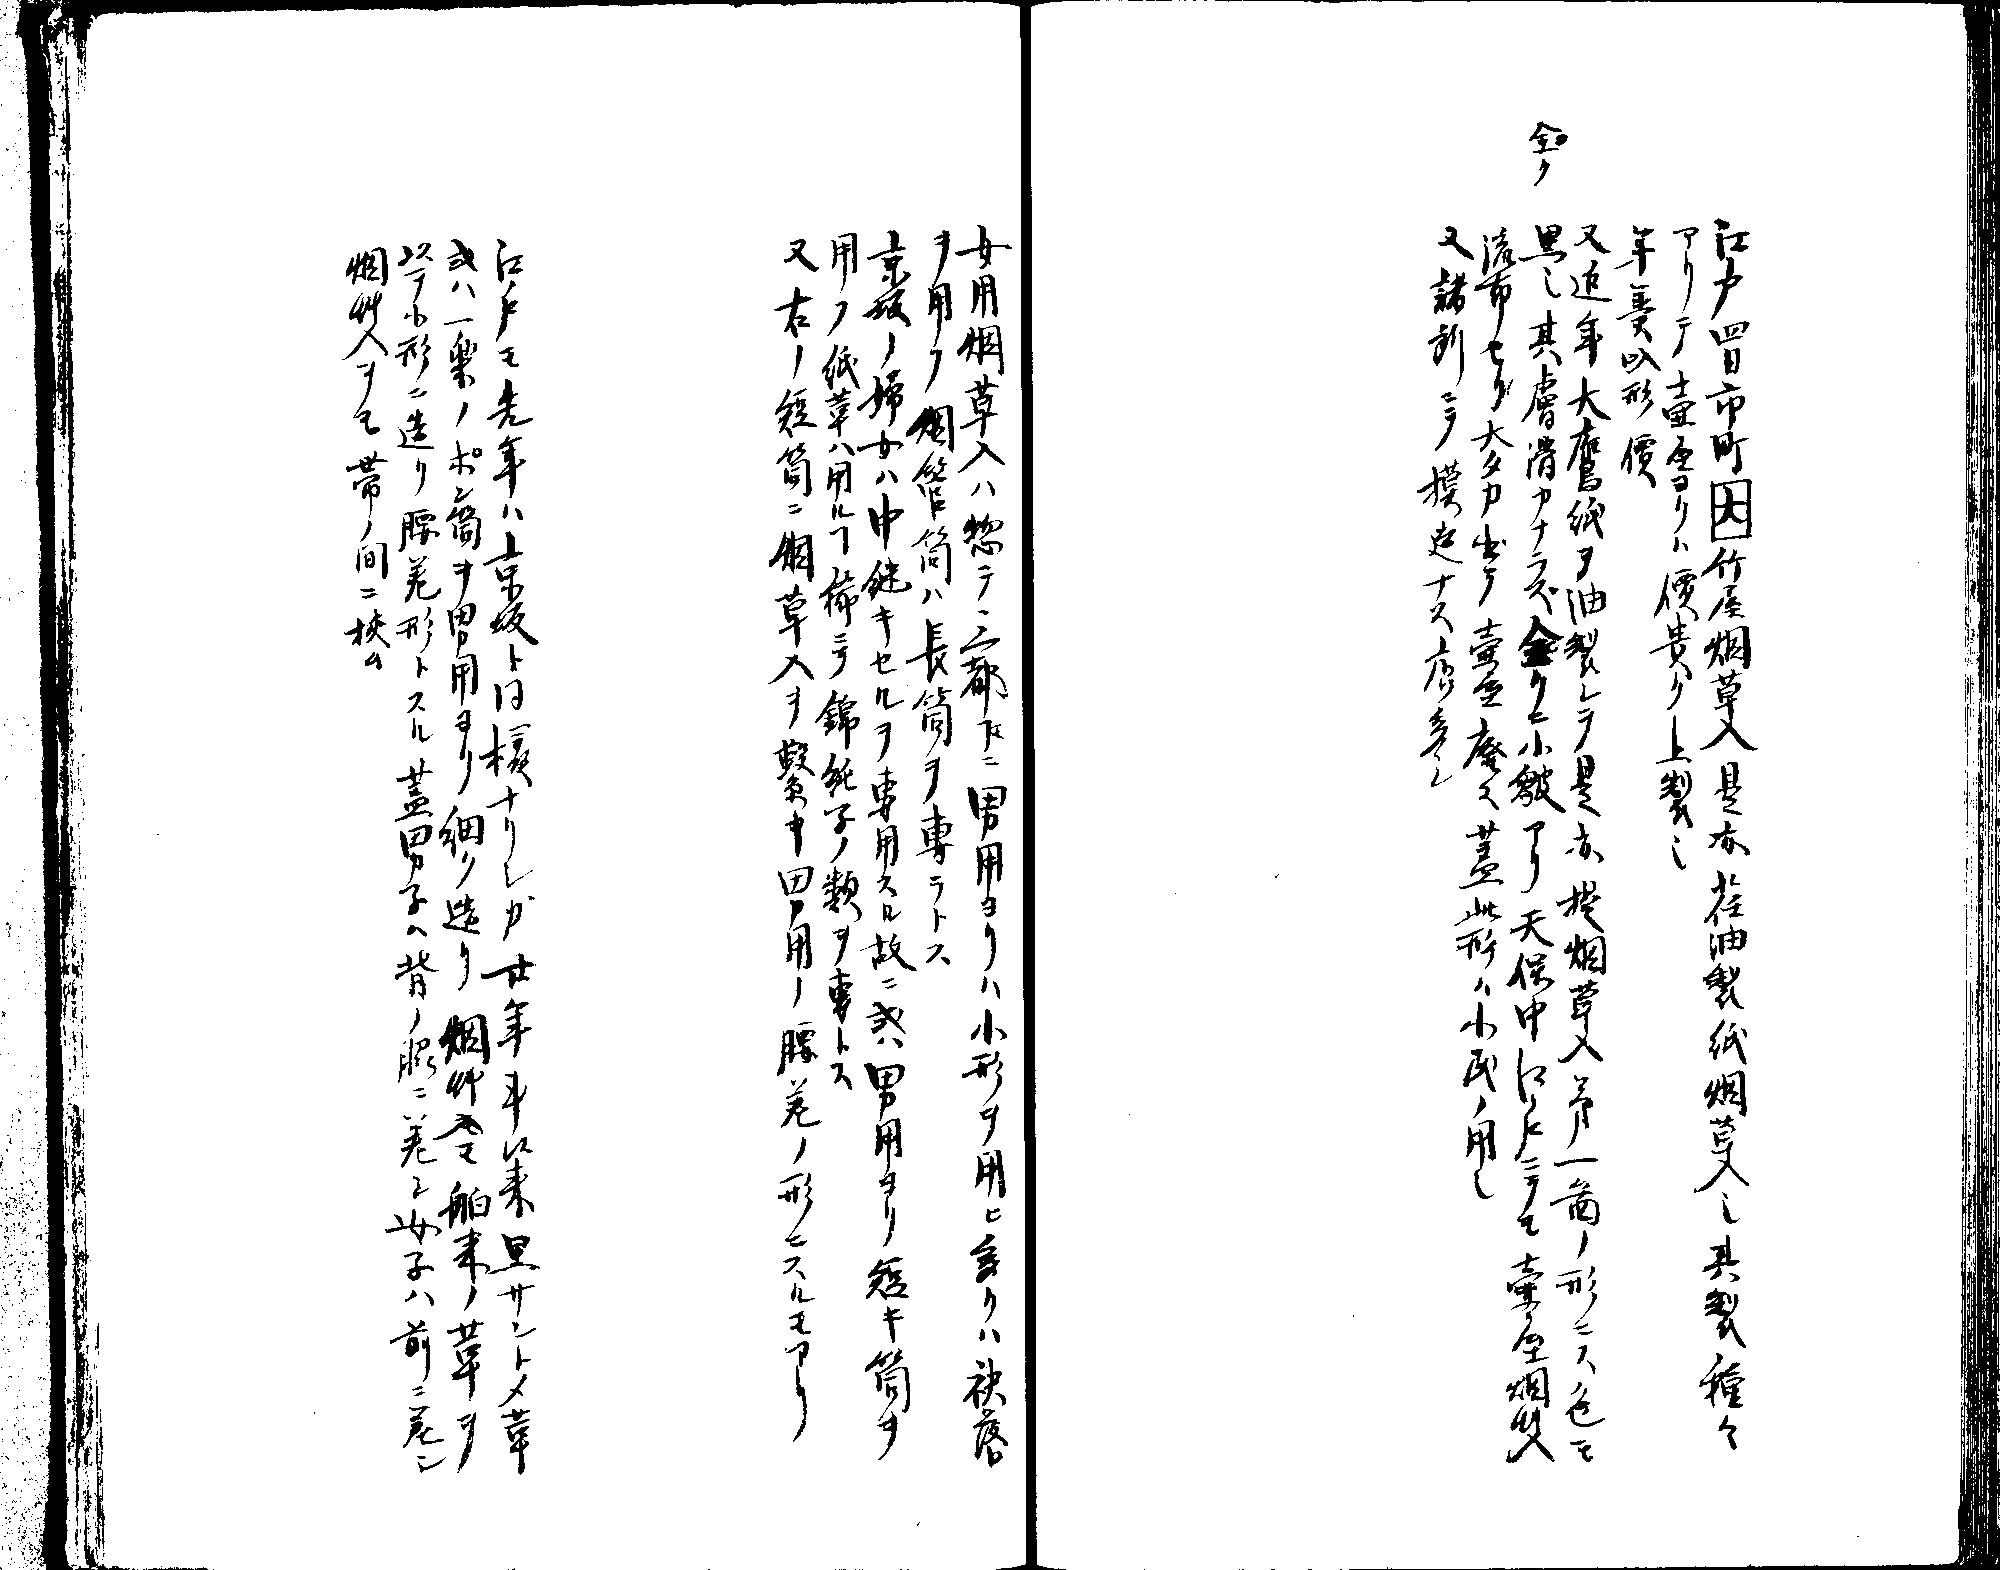 全ク
江戸四日市町因竹屋烟草入是亦荏油製紙烟草入也其製種々
アリテ壷屋ヨリハ價貴ク上製也
年号以形價
又近年大鷹紙ヲ油製シテ是亦提烟草入等一箇ノ形ニス色モ
黒シ其膚滑カナラズ全クヒ小皺アリ天保中江戸ニテモ壷屋烟艸入
流布セシガ大タカ出テ壷屋廃ス蓋此形ハ小民ノ用也
又諸所ニテ模造ナス店多シ
女用烟草入ハ惣テ三都トモニ男用ヨリハ小形ヲ用ヒ多クハ袂落
ヲ用フ烟管筒ハ長筒ヲ専ラトス
京坂ノ婦女ハ中継キセルヲ専用スル故ニ或ハ男用ヨリ短キ筒ヲ
用フ紙草ハ用ルコ稀ニテ錦純子ノ類ヲ専トス
又右ノ短筒ニ烟草入ヲ繋キ男用ノ腰差ノ形ニスルモアリ
江戸モ先年ハ京坂ト同様ナリシガ廿年半以来黒サントメ革
或ハ一楽ノポン筒ヲ男用ヨリ細ク造リ烟艸入モ舶来ノ革ヲ
以テ小形ニ造リ腰差形トスル蓋男子ハ背ノ腰ニ差シ女子ハ前ニ差シ
烟艸入ヲモ帯ノ間ニ挟ム